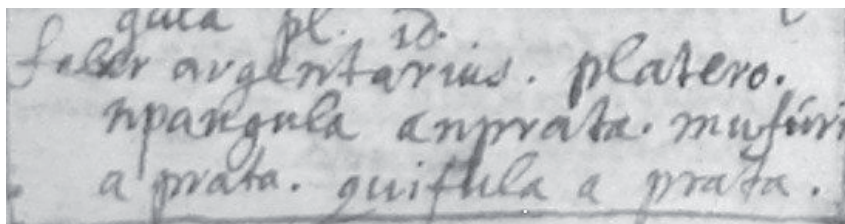 pl. id.
faber argentarius. platero.
npangula anprata. mufúri
a prata. quifula a prata.